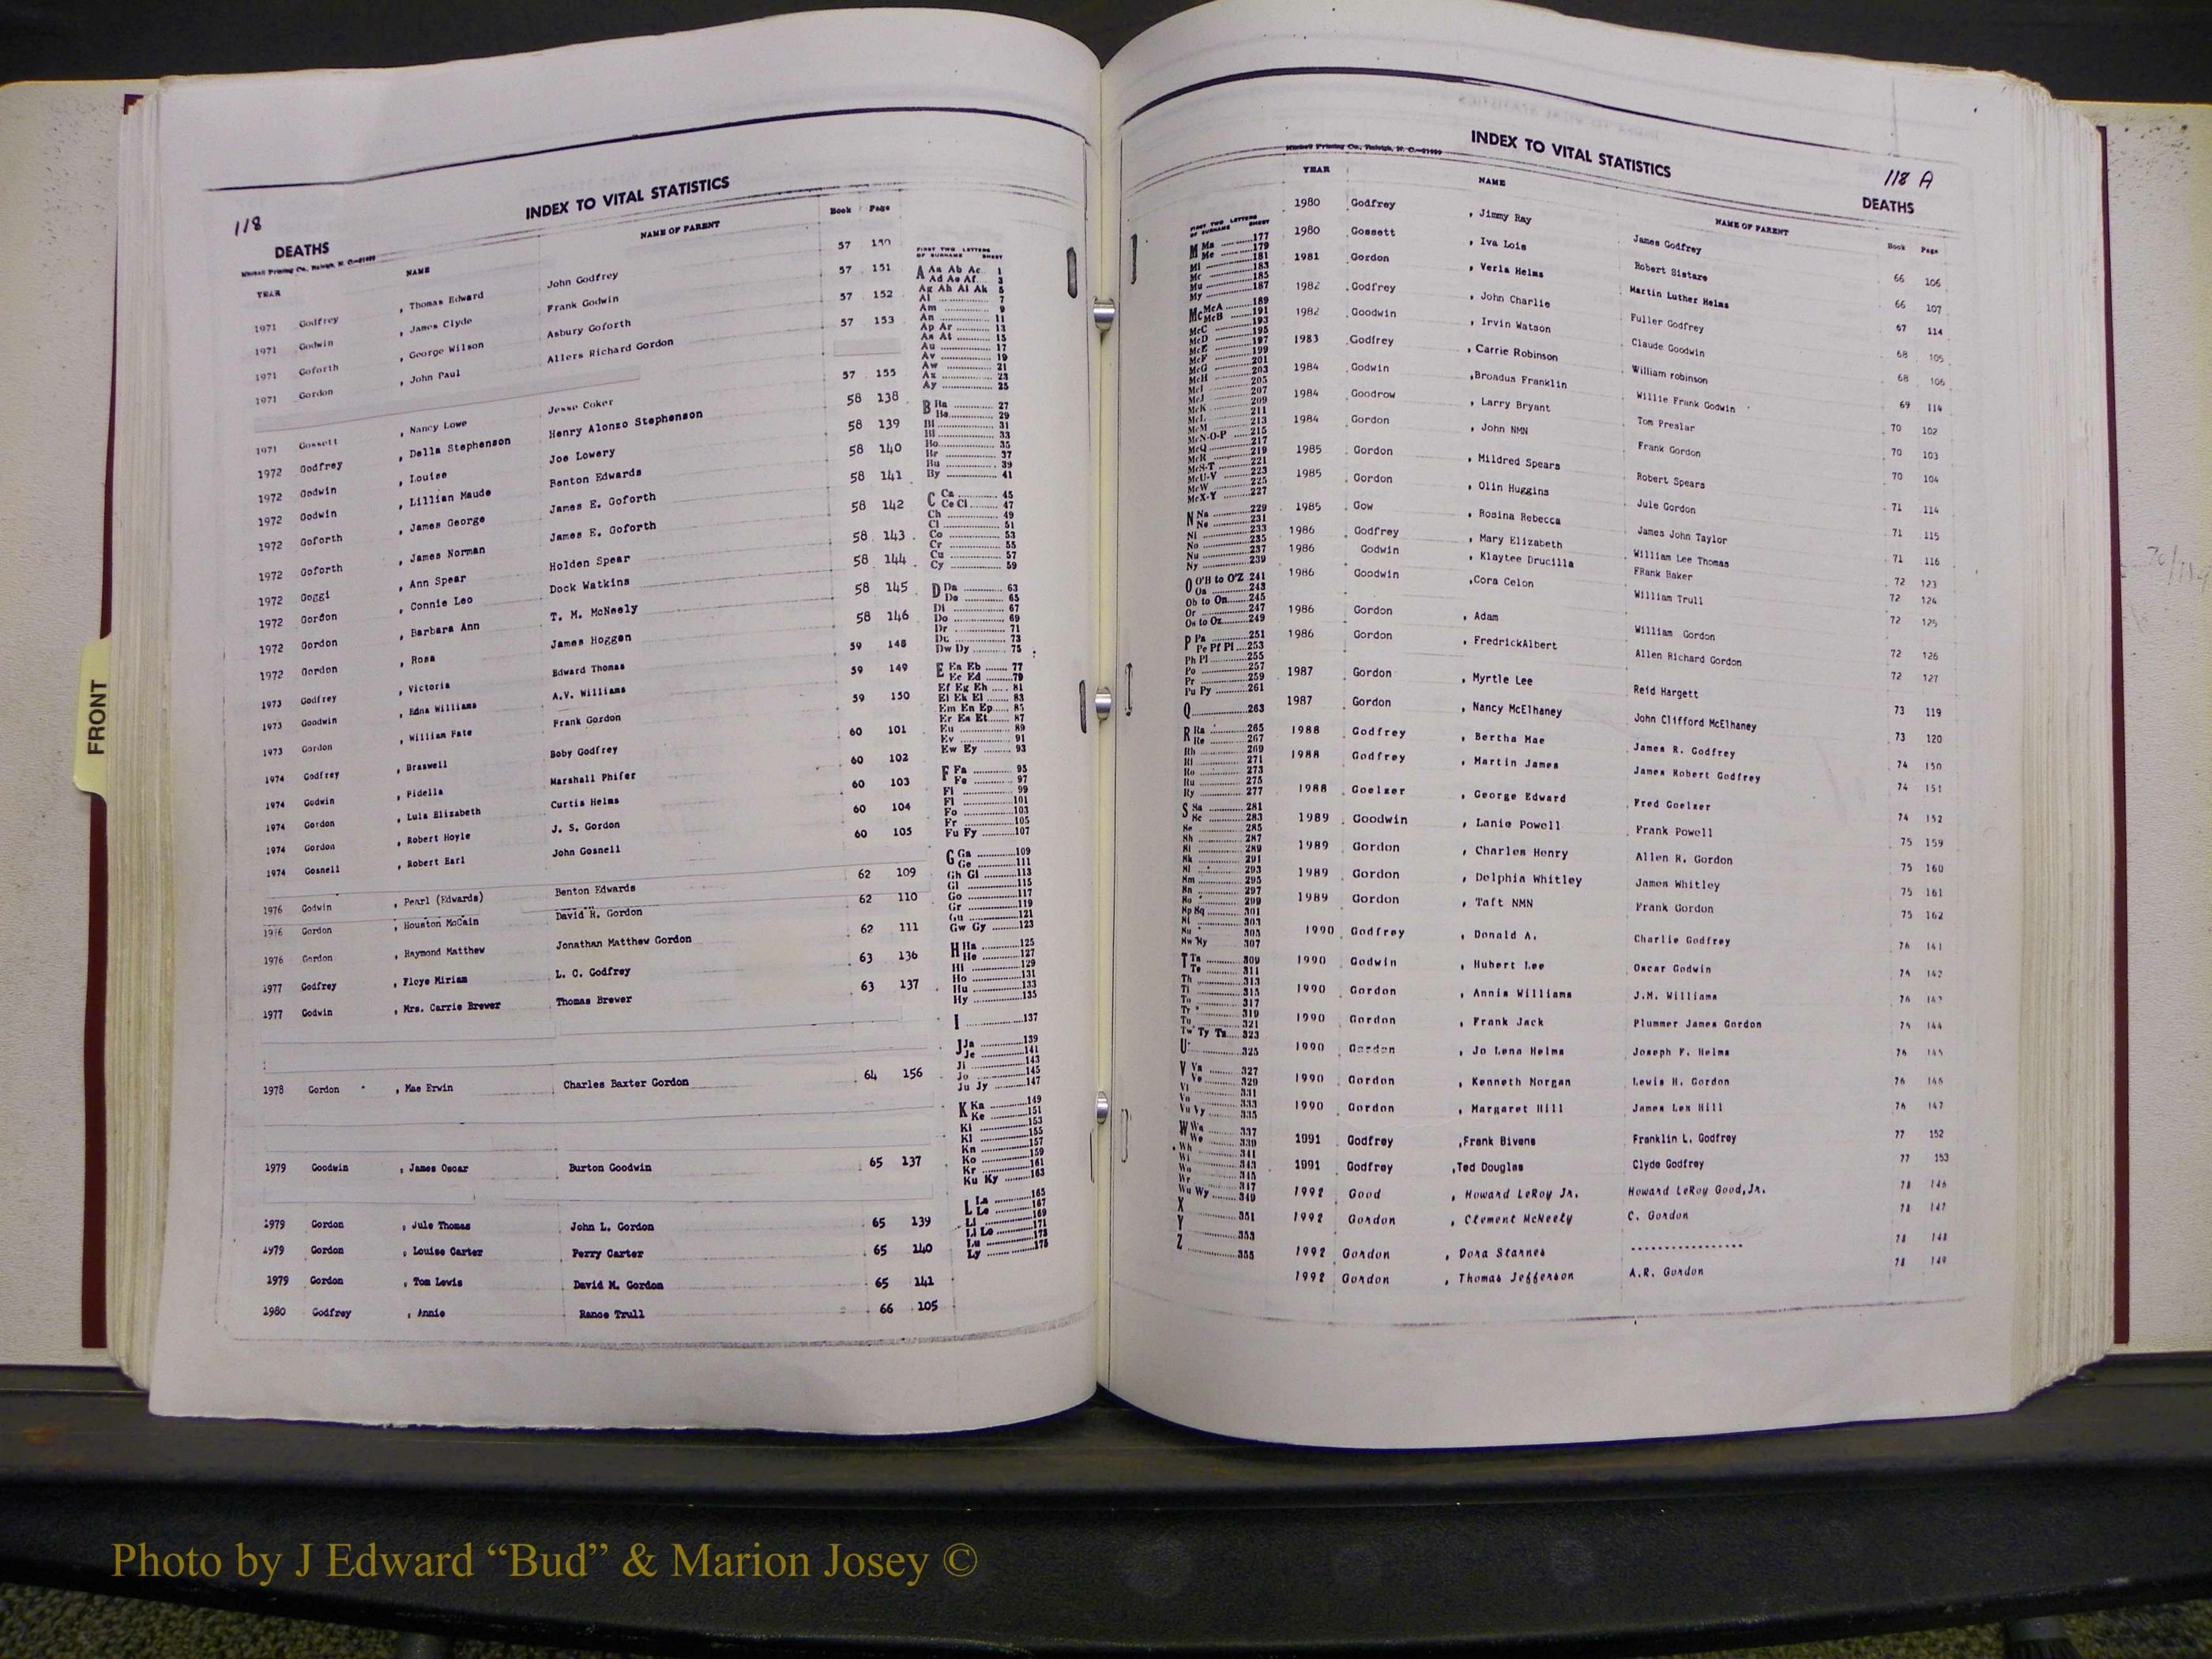 118
INDEX TO VITAL STATISTICS
DEATHS
Mitchell Printing Co., Raleigh, N. C.
YEAR NAME NAME OF PARENT Book Page
1971 Godfrey , Thomas Edward John Godfrey 57 150
1971 Godwin , James Clyde Frank Godwin 57 151
1971 Goforth , George Wilson Asbury Goforth 57 152
1971 Gordon , John Paul Allers Richard Gordon 57 153
1971 Gossett , Nancy Lowe Jesse Coker 57 155
1972 Godfrey , Della Stephenson Henry Alonzo Stephenson 58 138
1972 Godwin , Louise Joe Lowery 58 139
1972 Godwin , Lillian Maude Benton Edwards 58 140
1972 Goforth , James George James E. Goforth 58 141
1972 Goforth , James Norman James E. Goforth 58 142
1972 Goggi , Ann Spear Holden Spear 58 143
1972 Gordon , Connie Leo Dock Watkins 58 144
1972 Gordon , Barbara Ann T. M. McNeely 58 145
1972 Gordon , Rosa James Hoggen 58 146
1973 Godfrey , Victoria Edward Thomas 59 148
1973 Goodwin , Edna Williams A.V. Williams 59 149
1973 Gordon , William Pate Frank Gordon 59 150
1974 Godfrey , Braswell Boby Godfrey 60 101
1974 Godwin , Fidella Marshall Phifer 60 102
1974 Gordon , Lula Elizabeth Curtis Helms 60 103
1974 Gordon , Robert Hoyle J. S. Gordon 60 104
1974 Gosnell , Robert Earl John Gosnell 60 105
1976 Godwin , Pearl (Edwards) Benton Edwards 62 109
1976 Gordon , Houston McCain David H. Gordon 62 110
1976 Gordon , Raymond Matthew Jonathan Matthew Gordon 62 111
1977 Godfrey , Floye Miriam L. C. Godfrey 63 136
1977 Godwin , Mrs. Carrie Brewer Thomas Brewer 63 137
1978 Gordon , Mae Erwin Charles Baxter Gordon 64 156
1979 Goodwin , James Oscar Burton Goodwin 65 137
1979 Gordon , Jule Thomas John L. Gordon 65 139
1979 Gordon , Louise Carter Perry Carter 65 140
1979 Gordon , Tom Lewis David M. Gordon 65 141
1980 Godfrey , Annie Rance Trull 66 105
FIRST TWO LETTERS
OF SURNAME SHEET
A Aa Ab Ac 1
Ad Ae Af 3
Ag Ah Ai Ak 5
Al 7
Am 9
An 11
Ap Ar 13
As At 15
Au 17
Av 19
Aw 21
Ax 23
Ay 25
B Ba 27
Be 29
Bi 31
Bl 33
Bo 35
Br 37
Bu 39
By 41
C Ca 45
Ce Ci 47
Ch 49
Cl 51
Co 53
Cr 55
Cu 57
Cy 59
D Da 63
De 65
Di 67
Do 69
Dr 71
Du 73
Dw Dy 75
E Ea Eb 77
Ec Ed 79
Ef Eg Eh 81
Ei Ek El 83
Em En Ep 85
Er Es Et 87
Eu 89
Ev 91
Ew Ey 93
F Fa 95
Fe 97
Fi 99
Fl 101
Fo 103
Fr 105
Fu Fy 107
G Ga 109
Ge 111
Gh Gi 113
Gl 115
Go 117
Gr 119
Gu 121
Gw Gy 123
H Ha 125
He 127
Hi 129
Ho 131
Hu 133
Hy 135
I 137
J Ja 139
Je 141
Ji 143
Jo 145
Ju Jy 147
K Ka 149
Ke 151
Ki 153
Kl 155
Kn 157
Ko 159
Kr 161
Ku Ky 163
L La 165
Le 167
Li 169
Ll Lo 171
Lu 173
Ly 175
FRONT
118 A
INDEX TO VITAL STATISTICS
DEATHS
Mitchell Printing Co., Raleigh, N. C.
YEAR NAME NAME OF PARENT Book Page
FIRST TWO LETTERS
OF SURNAME SHEET
M Ma 177
Me 179
Mi 181
Mc 183
Mu 185
My 187
Mc McA 189
McB 191
McC 193
McD 195
McE 197
McF 199
McG 201
McH 203
McI 205
McJ 207
McK 209
McL 211
McM 213
McN-O-P 215
McQ 217
McR 219
McS-T 221
McU-V 223
McW 225
McX-Y 227
N Na 229
Ne 231
Ni 233
No 235
Nu 237
Ny 239
O O'B to O'Z 241
Oa 243
Ob to On 245
Or 247
Os to Oz 249
P Pa 251
Pe Pf Pi 253
Ph Pl 255
Po 257
Pr 259
Pu Py 261
Q 263
R Ra 265
Re 267
Rh 269
Ri 271
Ro 273
Ru 275
Ry 277
S Sa 281
Sc 283
Se 285
Sh 287
Si 289
Sk 291
Sl 293
Sm 295
Sn 297
So 299
Sp Sq 301
St 303
Su 305
Sw Sy 307
T Ta 309
Te 311
Th 313
Ti 315
To 317
Tr 319
Tu 321
Tw Ty Tz 323
U 325
V Va 327
Ve 329
Vi 331
Vo 333
Vu Vy 335
W Wa 337
We 339
Wh 341
Wi 343
Wo 345
Wr 347
Wu Wy 349
X 351
Y 353
Z 355
1980 Godfrey , Jimmy Ray James Godfrey 66 106
1980 Gossett , Iva Lois Robert Sistare 66 107
1981 Gordon , Verla Helms Martin Luther Helms 67 114
1982 Godfrey , John Charlie Fuller Godfrey 68 105
1982 Goodwin , Irvin Watson Claude Goodwin 68 106
1983 Godfrey , Carrie Robinson William robinson 69 114
1984 Godwin ,Broadus Franklin Willie Frank Godwin 70 102
1984 Goodrow , Larry Bryant Tom Preslar 70 103
1984 Gordon , John NMN Frank Gordon 70 104
1985 Gordon , Mildred Spears Robert Spears 71 114
1985 Gordon , Olin Huggins Jule Gordon 71 115
1985 Gow , Rosina Rebecca James John Taylor 71 116
1986 Godfrey , Mary Elizabeth William Lee Thomas 72 123
1986 Godwin , Klaytee Drucilla FRank Baker 72 124
1986 Goodwin ,Cora Celon William Trull 72 125
1986 Gordon , Adam William Gordon 72 126
1986 Gordon , FredrickAlbert Allen Richard Gordon 72 127
1987 Gordon , Myrtle Lee Reid Hargett 73 119
1987 Gordon , Nancy McElhaney John Clifford McElhaney 73 120
1988 Godfrey , Bertha Mae James R. Godfrey 74 150
1988 Godfrey , Martin James James Robert Godfrey 74 151
1988 Goelzer , George Edward Fred Goelzer 74 152
1989 Goodwin , Lanie Powell Frank Powell 75 159
1989 Gordon , Charles Henry Allen R. Gordon 75 160
1989 Gordon , Delphia Whitley James Whitley 75 161
1989 Gordon , Taft NMN Frank Gordon 75 162
1990 Godfrey , Donald A. Charlie Godfrey 76 141
1990 Godwin , Hubert Lee Oscar Godwin 76 142
1990 Gordon , Annis Williams J.M. Williams 76 143
1990 Gordon , Frank Jack Plummer James Gordon 76 144
1990 Gordon , Jo Lena Helms Joseph F. Helms 76 145
1990 Gordon , Kenneth Morgan Lewis H. Gordon 76 146
1990 Gordon , Margaret Hill James Lex Hill 76 147
1991 Godfrey ,Frank Bivens Franklin L. Godfrey 77 152
1991 Godfrey ,Ted Douglas Clyde Godfrey 77 153
1992 Good , Howard LeRoy Jr. Howard LeRoy Good,Jr. 78 146
1992 Gordon , Clement McNeely C. Gordon 78 147
1992 Gordon , Dora Starnes ---------------- 78 148
1992 Gordon , Thomas Jefferson A.R. Gordon 78 149
Photo by J Edward “Bud” & Marion Josey ©